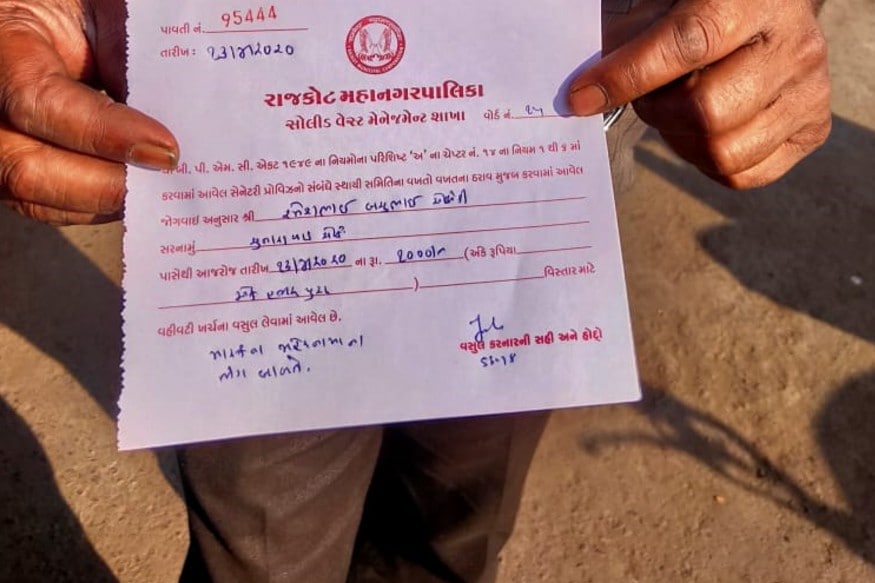 પાવતી નં. 95444
તારીખ : ૧૩/૪/૨૦૨૦
રાજકોટ મહાનગરપાલિકા
સોલીડ વેસ્ટ મેનેજમેન્ટ શાખા વોર્ડ નં.
બી. પી. એમ. સી. એકટ ૧૯૪૯ ના નિયમોના પરિશિષ્ટ 'અ' ના ચેપ્ટર નં. ૧૪ ના નિયમ ૧ થી ૪ માં
કરવામાં આવેલ સેનેટરી પ્રોવિઝનો સંબંધે સ્થાયી સમિતિના વખતો વખતના ઠરાવ મુજબ કરવામાં આવેલ
જોગવાઈ અનુસાર શ્રી રમેશભાઈ બચુભાઈ
સરનામું ચોક
પાસેથી આજરોજ તારીખ ૧૩/૪/૨૦૨૦ ના રૂા. ૧૦૦૦/- (અંકે રૂપિયા
એક હજાર પુરા ) વિસ્તાર માટે
વહીવટી ખર્ચના વસુલ લેવામાં આવેલ છે.
વસુલ કરનારની સહી અને હોદ્દો
માસ્કના જાહેરનામાના
ભંગ બાબતે.